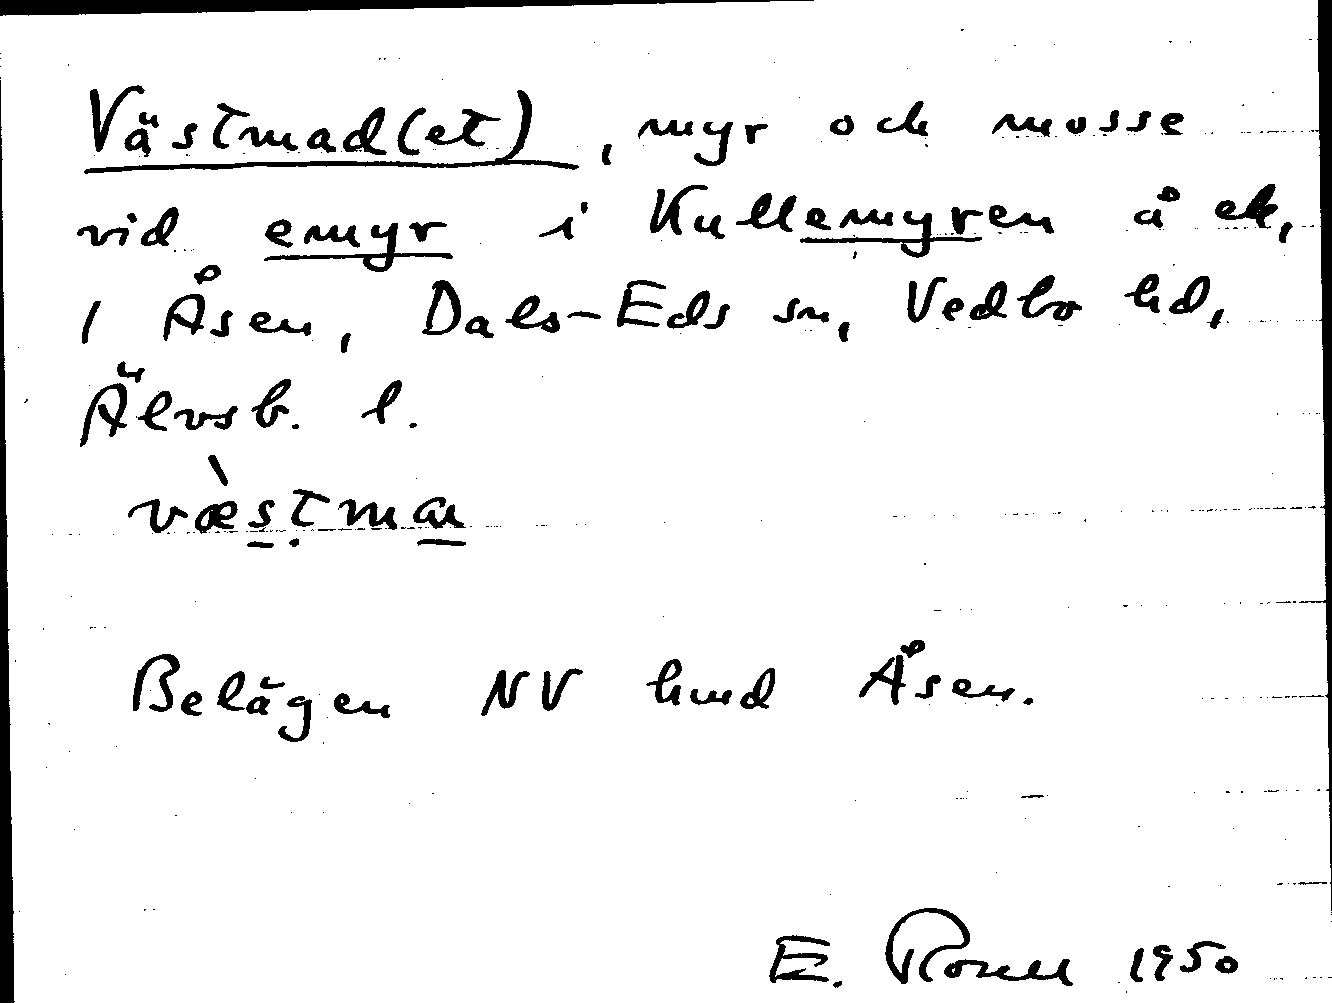 Västmad(et), myr och mosse
vid emyr i Kullemyren å ek,
1 Åsen, Dals-Eds sn, Vedbo hd,
Älvsb. l.
væ̀stma
Belägen NV hmd Åsen.
E. 1950